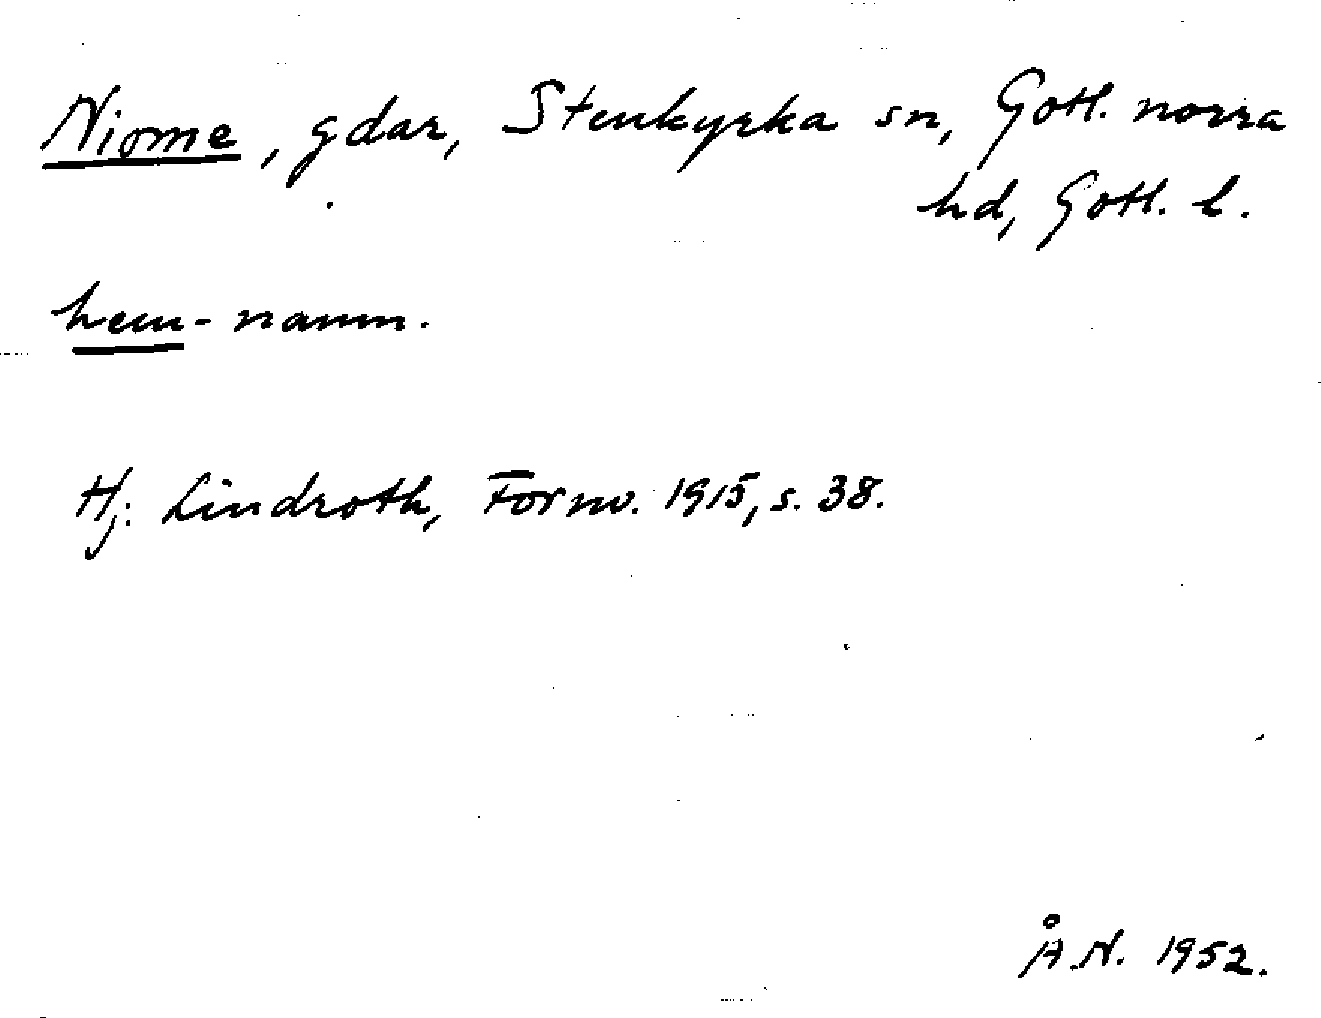 Niome, gdar, Stenkyrka sn, Gotl. norra
hd, Gotl. l.
hem-namn.
Hj. Lindroth, Fornv. 1915, s. 38.
Å.N. 1952.